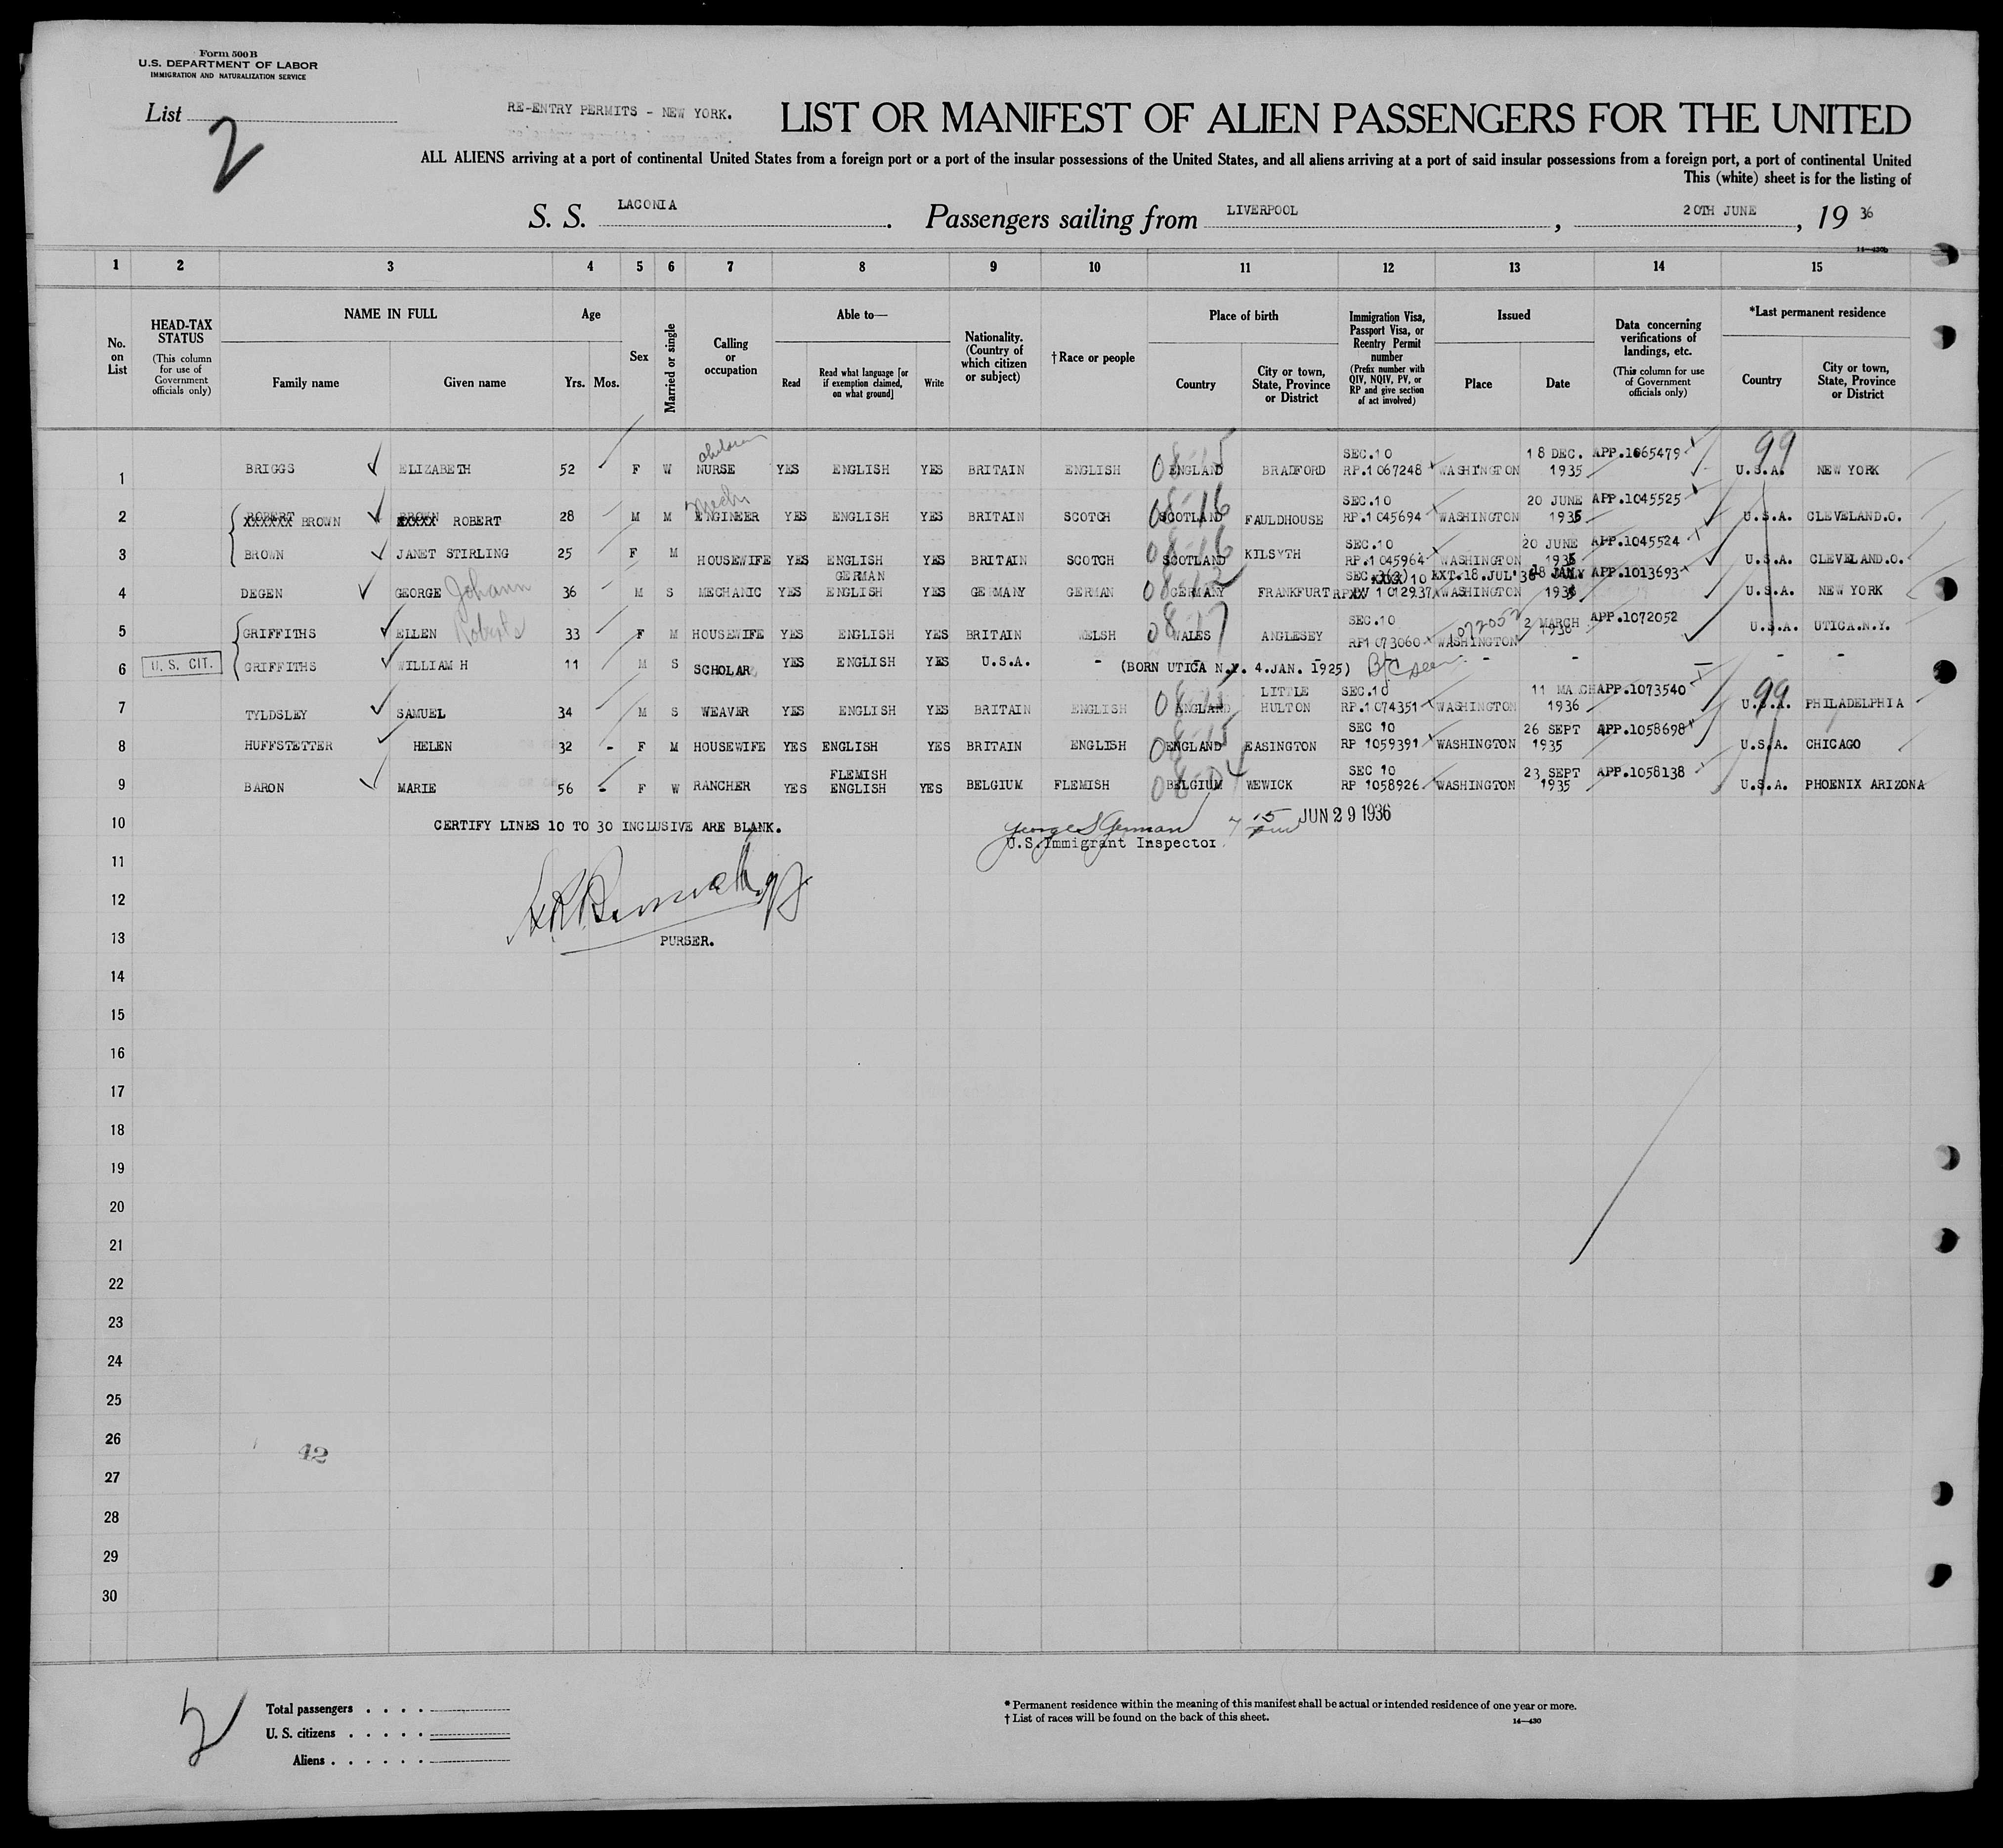 Form 500B
U.S. DEPARTMENT OF LABOR
IMMIGRATION AND NATURALIZATION SERVICE
List 2
RE-ENTRY PERMITS - NEW YORK.
LIST OR MANIFEST OF ALIEN PASSENGERS FOR THE UNITED
ALL ALIENS arriving at a port of continental United States from a foreign port or a port of the insular possessions of the United States, and all aliens arriving at a port of said insular possessions from a foreign port, a port of continental United
This (white) sheet is for the listing of
S. S. LACONIA. Passengers sailing from LIVERPOOL, 20TH JUNE, 19 36
14—430b
1 2 3 4 5 6 7 8 9 10 11 12 13 14 15
No. on List
HEAD-TAX STATUS (This column for use of Government officials only)
NAME IN FULL
Family name Given name
Age
Yrs. Mos.
Sex
Married or single
Calling or occupation
Able to—
Read
Read what language [or if exemption claimed, on what ground]
Write
Nationality. (Country of which citizen or subject)
†Race or people
Place of birth
Country
City or town, State, Province or District
Immigration Visa, Passport Visa, or Reentry Permit number
(Prefix number with QIV, NQIV, PV, or RP and give section of act involved)
Issued
Place Date
Data concerning verifications of landings, etc.
(This column for use of Government officials only)
*Last permanent residence
Country
City or town, State, Province or District
1 BRIGGS ELIZABETH 52 F W NURSE YES ENGLISH YES BRITAIN ENGLISH 08-15 ENGLAND BRADFORD SEC.10 RP.1067248 WASHINGTON 18 DEC. 1935 APP.1065479 99 U.S.A. NEW YORK
2 ROBERT XXXXXX BROWN BROWN XXXXX ROBERT 28 M M ENGINEER YES ENGLISH YES BRITAIN SCOTCH 08-16 SCOTLAND FAULDHOUSE SEC.10 RP.1045694 WASHINGTON 20 JUNE 1935 APP.1045525 U.S.A. CLEVELAND.O.
3 BROWN JANET STIRLING 25 F M HOUSEWIFE YES ENGLISH YES BRITAIN SCOTCH 08-16 SCOTLAND KILSYTH SEC.10 RP.1045964 WASHINGTON 20 JUNE 1935 APP.1045524 U.S.A. CLEVELAND.O.
4 DEGEN GEORGE Johann 36 M S MECHANIC YES GERMAN ENGLISH YES GERMANY GERMAN GERMANY FRANKFURT SEC 10 1012937 WASHINGTON EXT.18.JUL'36 18 JAN. APP.1013693 U.S.A. NEW YORK
5 GRIFFITHS ELLEN Roberts 33 F M HOUSEWIFE YES ENGLISH YES BRITAIN WELSH 08-17 WALES ANGLESEY SEC.10 RP1073060 WASHINGTON 1072052 2 MARCH 1936 APP.1072052 U.S.A. UTICA.N.Y.
6 U. S. CIT. GRIFFITHS WILLIAM H 11 M S SCHOLAR YES ENGLISH YES U.S.A. - (BORN UTICA N.Y. 4.JAN. 1925) B/C seen - - - - -
7 TYLDSLEY SAMUEL 34 M S WEAVER YES ENGLISH YES BRITAIN ENGLISH 08-15 ENGLAND LITTLE HULTON SEC.10 RP.1074351 WASHINGTON 11 MARCH 1936 APP.1073540 99 U.S.A. PHILADELPHIA
8 HUFFSTETTER HELEN 32 - F M HOUSEWIFE YES ENGLISH YES BRITAIN ENGLISH 08-15 ENGLAND EASINGTON SEC 10 RP 1059391 WASHINGTON 26 SEPT 1935 APP.1058698 U.S.A. CHICAGO
9 BARON MARIE 56 - F W RANCHER YES FLEMISH ENGLISH YES BELGIUM FLEMISH 08-04 BELGIUM WEWICK SEC 10 RP 1058926 WASHINGTON 23 SEPT 1935 APP.1058138 U.S.A. PHOENIX ARIZONA
10 CERTIFY LINES 10 TO 30 INCLUSIVE ARE BLANK. JUN 29 1936
U.S.Immigrant Inspector
11
12
13 PURSER.
14
15
16
17
18
19
20
21
22
23
24
25
26 42
27
28
29
30
2
Total passengers
U. S. citizens
Aliens
* Permanent residence within the meaning of this manifest shall be actual or intended residence of one year or more.
† List of races will be found on the back of this sheet. 14—430